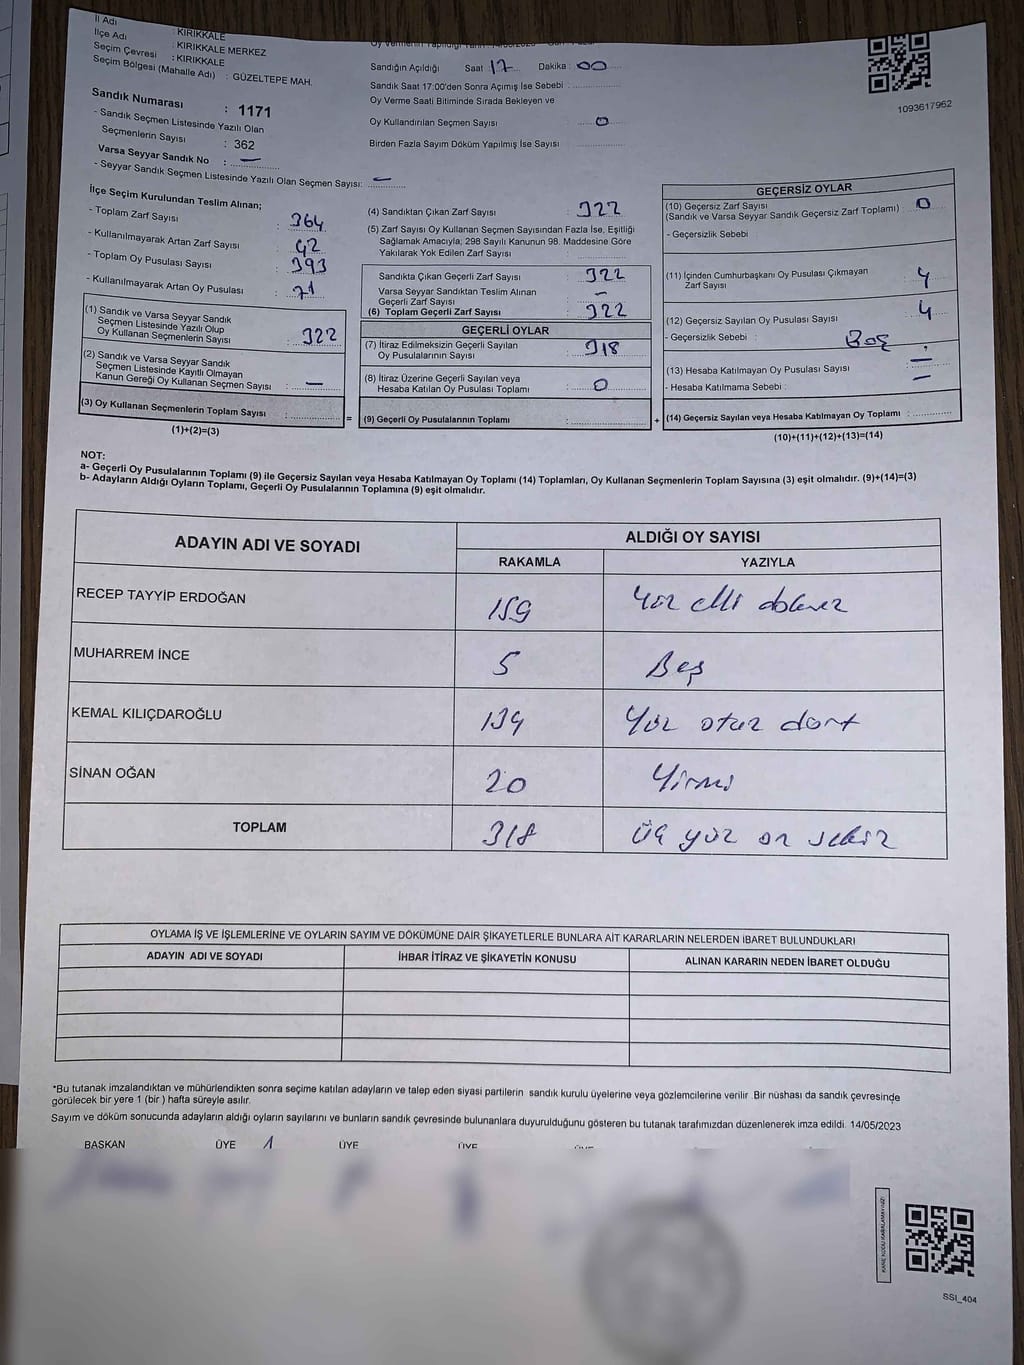 İl Adı : KIRIKKALE
İlçe Adı : KIRIKKALE MERKEZ
Seçim Çevresi : KIRIKKALE
Seçim Bölgesi (Mahalle Adı) : GÜZELTEPE MAH.
Sandık Numarası : 1171
- Sandık Seçmen Listesinde Yazılı Olan
Seçmenlerin Sayısı : 362
Varsa Seyyar Sandık No : —
- Seyyar Sandık Seçmen Listesinde Yazılı Olan Seçmen Sayısı: —
Oy Vermenin Yapıldığı Tarih
Sandığın Açıldığı Saat 17 Dakika : 00
Sandık Saat 17.00'den Sonra Açımış İse Sebebi :
Oy Verme Saati Bitiminde Sırada Bekleyen ve
Oy Kullandırılan Seçmen Sayısı : 0
Birden Fazla Sayım Döküm Yapılmış İse Sayısı
1093617962
İlçe Seçim Kurulundan Teslim Alınan;
- Toplam Zarf Sayısı : 364
- Kullanılmayarak Artan Zarf Sayısı : 42
- Toplam Oy Pusulası Sayısı : 393
- Kullanılmayarak Artan Oy Pusulası : 71
(1) Sandık ve Varsa Seyyar Sandık
Seçmen Listesinde Yazılı Olup
Oy Kullanan Seçmenlerin Sayısı : 322
(2) Sandık ve Varsa Seyyar Sandık
Seçmen Listesinde Kayıtlı Olmayan
Kanun Gereği Oy Kullanan Seçmen Sayısı : —
(3) Oy Kullanan Seçmenlerin Toplam Sayısı :
(1)+(2)=(3)
(4) Sandıktan Çıkan Zarf Sayısı : 322
(5) Zarf Sayısı Oy Kullanan Seçmen Sayısından Fazla İse, Eşitliği
Sağlamak Amacıyla; 298 Sayılı Kanunun 98. Maddesine Göre
Yakılarak Yok Edilen Zarf Sayısı :
Sandıkta Çıkan Geçerli Zarf Sayısı : 322
Varsa Seyyar Sandıktan Teslim Alınan
Geçerli Zarf Sayısı : —
(6) Toplam Geçerli Zarf Sayısı : 322
GEÇERLİ OYLAR
(7) İtiraz Edilmeksizin Geçerli Sayılan
Oy Pusulalarının Sayısı : 318
(8) İtiraz Üzerine Geçerli Sayılan veya
Hesaba Katılan Oy Pusulası Toplamı : 0
= (9) Geçerli Oy Pusulalarının Toplamı :
GEÇERSİZ OYLAR
(10) Geçersiz Zarf Sayısı
(Sandık ve Varsa Seyyar Sandık Geçersiz Zarf Toplamı) : 0
- Geçersizlik Sebebi
(11) İçinden Cumhurbaşkanı Oy Pusulası Çıkmayan
Zarf Sayısı : 4
(12) Geçersiz Sayılan Oy Pusulası Sayısı : 4
- Geçersizlik Sebebi : Boş
(13) Hesaba Katılmayan Oy Pusulası Sayısı : —
- Hesaba Katılmama Sebebi : —
+ (14) Geçersiz Sayılan veya Hesaba Katılmayan Oy Toplamı :
(10)+(11)+(12)+(13)=(14)
NOT:
a- Geçerli Oy Pusulalarının Toplamı (9) ile Geçersiz Sayılan veya Hesaba Katılmayan Oy Toplamı (14) Toplamları, Oy Kullanan Seçmenlerin Toplam Sayısına (3) eşit olmalıdır. (9)+(14)=(3)
b- Adayların Aldığı Oyların Toplamı, Geçerli Oy Pusulalarının Toplamına (9) eşit olmalıdır.
ADAYIN ADI VE SOYADI
ALDIĞI OY SAYISI
RAKAMLA YAZIYLA
RECEP TAYYİP ERDOĞAN 159 Yüz elli dokuz
MUHARREM İNCE 5 Beş
KEMAL KILIÇDAROĞLU 134 Yüz otuz dört
SİNAN OĞAN 20 Yirmi
TOPLAM 318 Üç yüz on sekiz
OYLAMA İŞ VE İŞLEMLERİNE VE OYLARIN SAYIM VE DÖKÜMÜNE DAİR ŞİKAYETLERLE BUNLARA AİT KARARLARIN NELERDEN İBARET BULUNDUKLARI
ADAYIN ADI VE SOYADI İHBAR İTİRAZ VE ŞİKAYETİN KONUSU ALINAN KARARIN NEDEN İBARET OLDUĞU
*Bu tutanak imzalandıktan ve mühürlendikten sonra seçime katılan adayların ve talep eden siyasi partilerin sandık kurulu üyelerine veya gözlemcilerine verilir. Bir nüshası da sandık çevresinde
görülecek bir yere 1 (bir ) hafta süreyle asılır.
Sayım ve döküm sonucunda adayların aldığı oyların sayılarını ve bunların sandık çevresinde bulunanlara duyurulduğunu gösteren bu tutanak tarafımızdan düzenlenerek imza edildi. 14/05/2023
BAŞKAN ÜYE ÜYE ÜYE
SSI_404